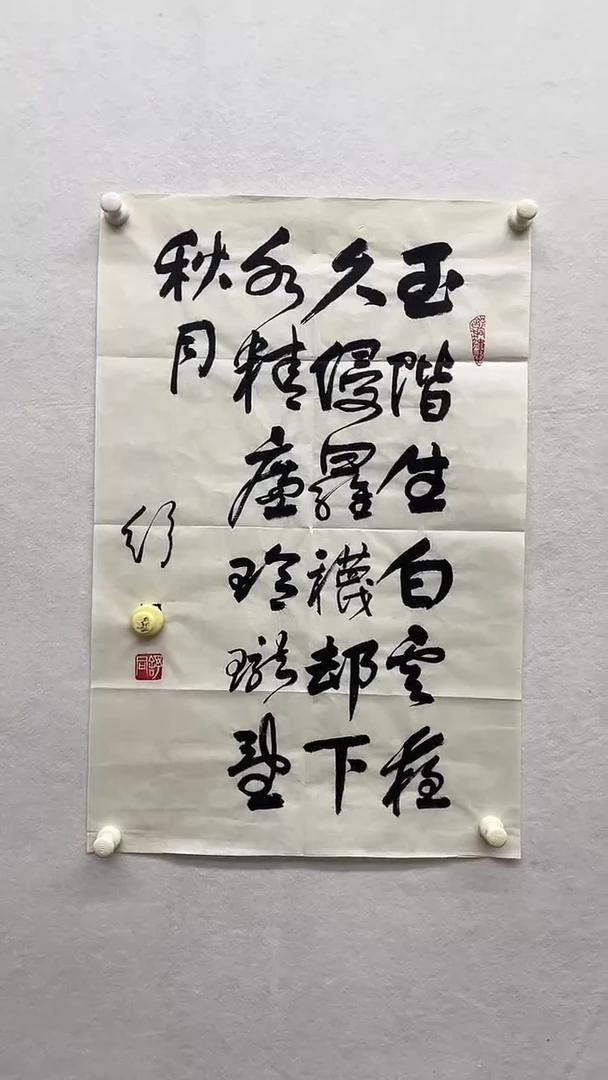 玉階生白露夜
久侵羅襪却下
水精簾玲瓏望
秋月
舒
舒同